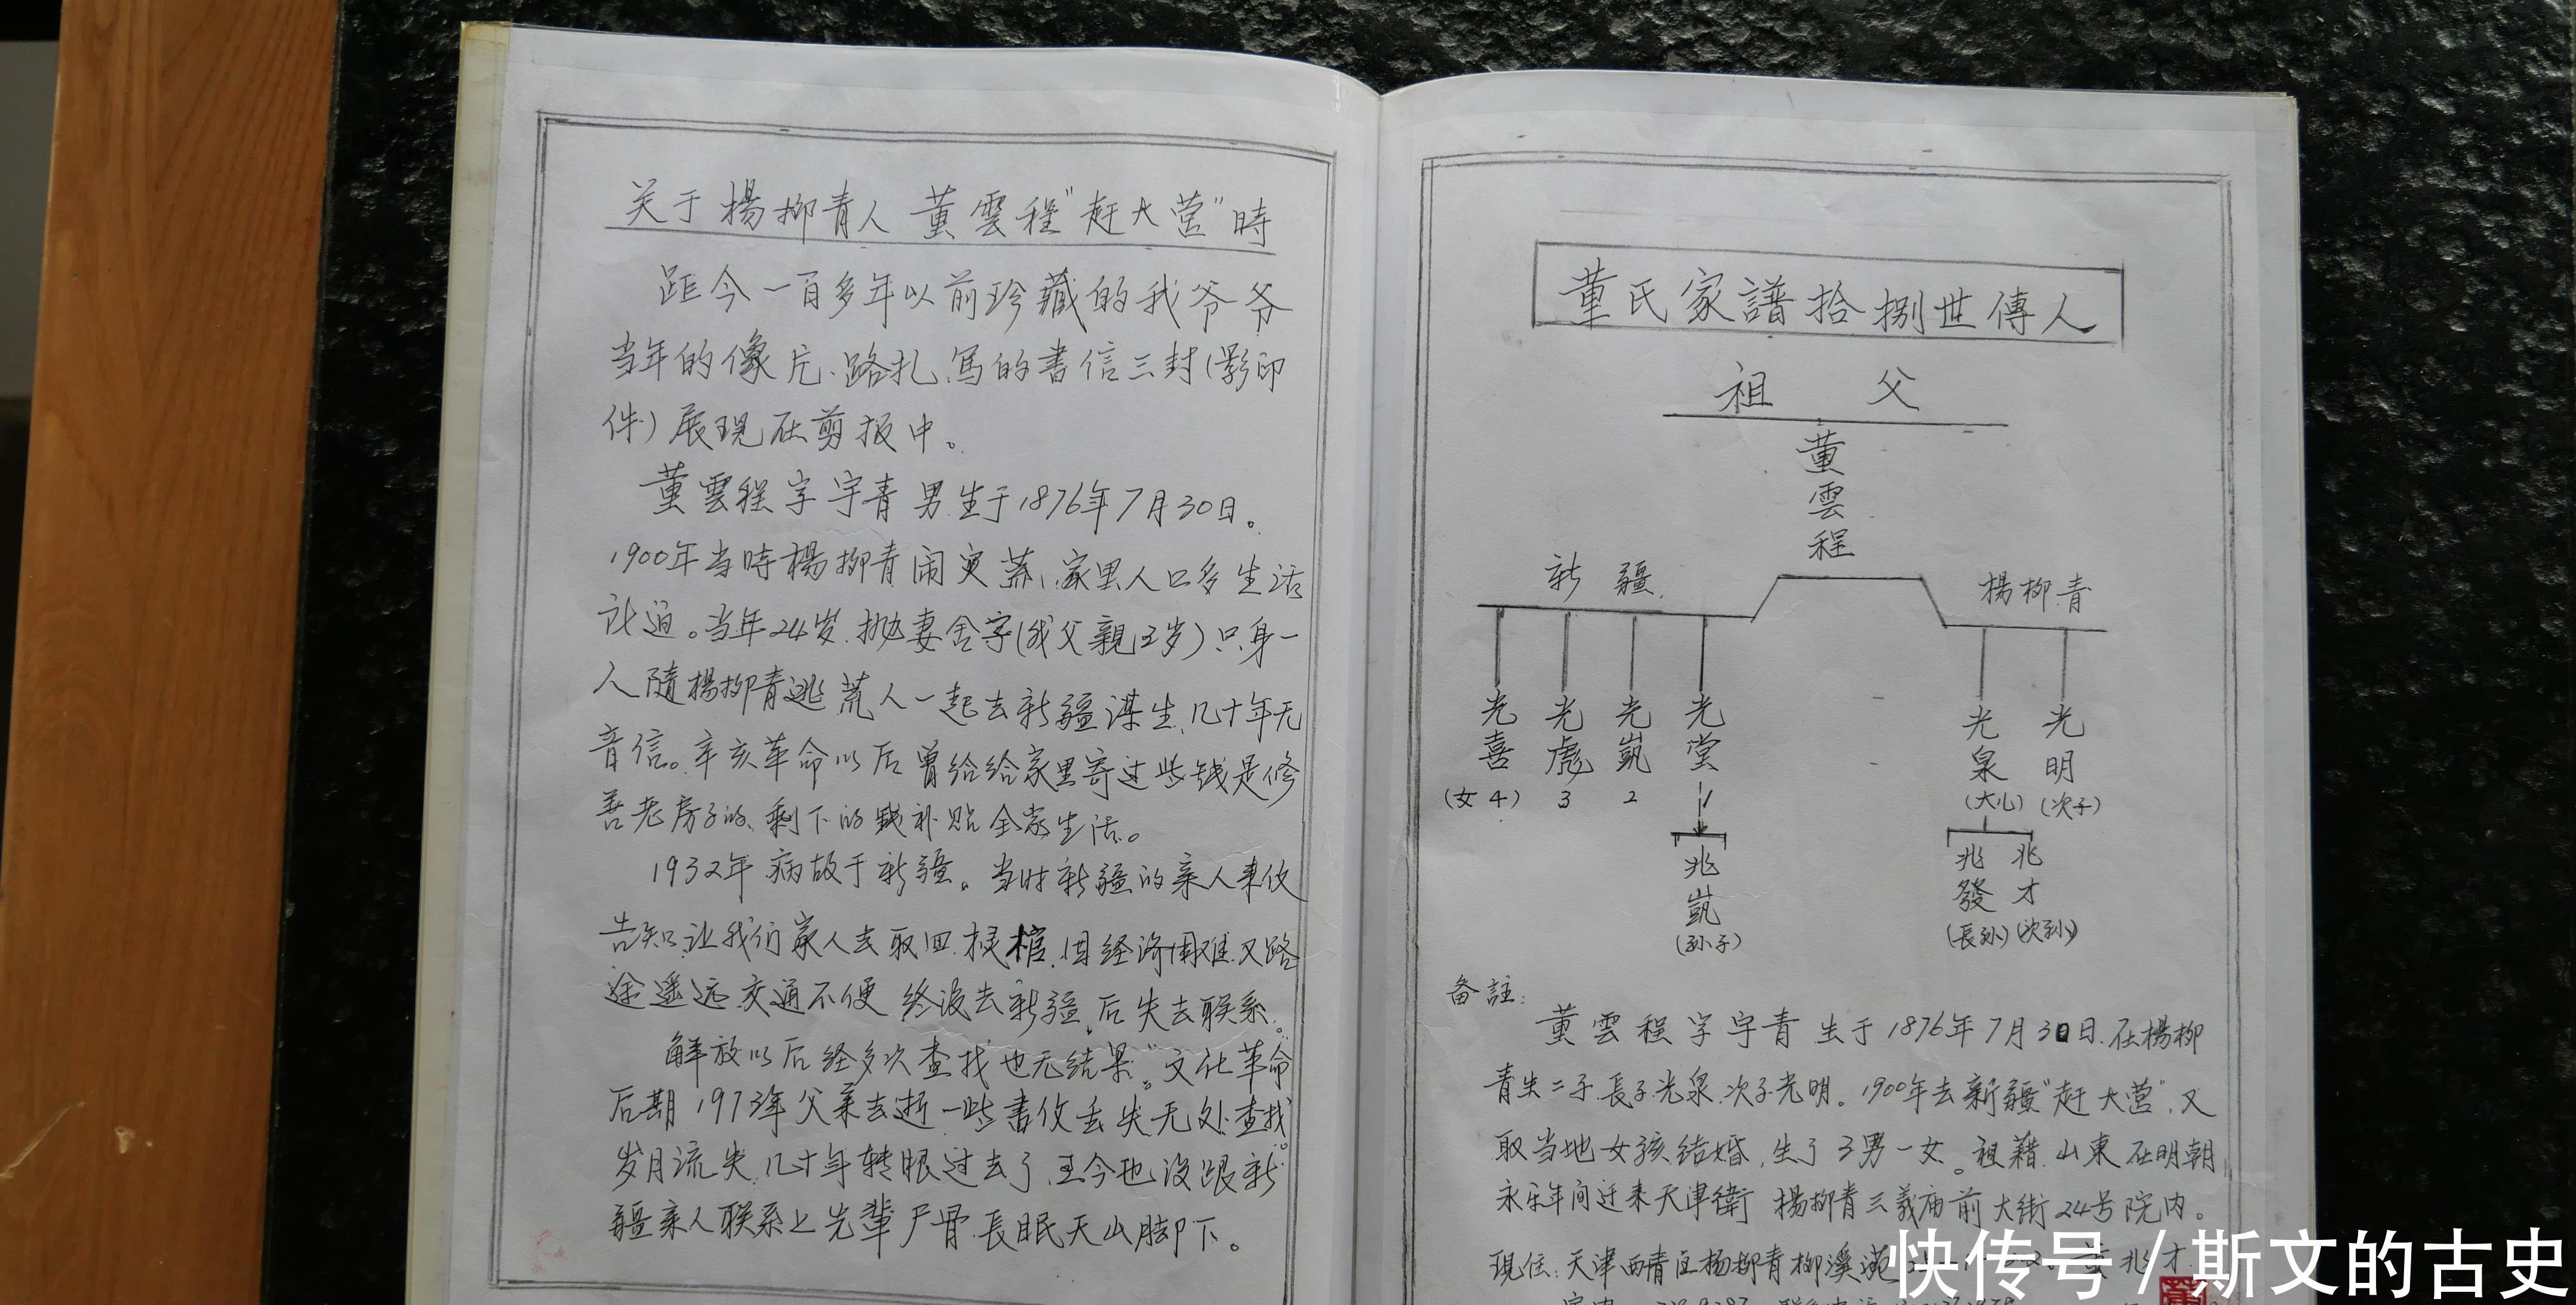 关于楊柳青人董雲程"赶大营"時
距今一百多年以前珍藏的我爷爷
当年的像片、路扎、写的書信三封(影印
件)展現在剪报中。
董雲程字宇青 男 生于1876年7月30日。
1900年当時楊柳青闹灾荒、家里人口多生活
迫。当年24岁.抛妻舍子(我父親2岁)只身一
人隨楊柳青逃荒人一起去新疆谋生,几十年无
音信。辛亥革命以后曾给给家里寄过些钱是修
善老房子的、剩下的钱补贴全家生活。
1932年病故于新疆。当时新疆的亲人来信
告知让我们家人去取回棺,因经济困难又路
途遥远交通不便 终没去新疆,后失去联系。
解放以后经多次查找也无结果。"文化革命
后期1973年父亲去逝一些書信丢失无处查找。
岁月流失,几十年转眼过去了,至今也没跟新
疆亲人联系上先輩尸骨長眠天山脚下。
董氏家譜拾捌世傳人
祖 父
董雲程
新 疆 楊柳青
光喜 光彪 光凱 光堂 光泉 光明
(女 4) 3 2 1 (大儿) (次子)
兆凱 兆發 兆才
(孙子) (長孙) (次孙)
备註:
董雲程字宇青 生于1876年7月30日.在楊柳
青生二子.長子光泉.次子光明。1900年去新疆"赶大营",又
取当地女孩结婚,生了3男一女。祖籍山東在明朝
永乐年间迁来天津衛 楊柳青三義庙前大街24号院内。
現住:天津西青区杨柳青柳溪苑 兆才
快传号/斯文的古史